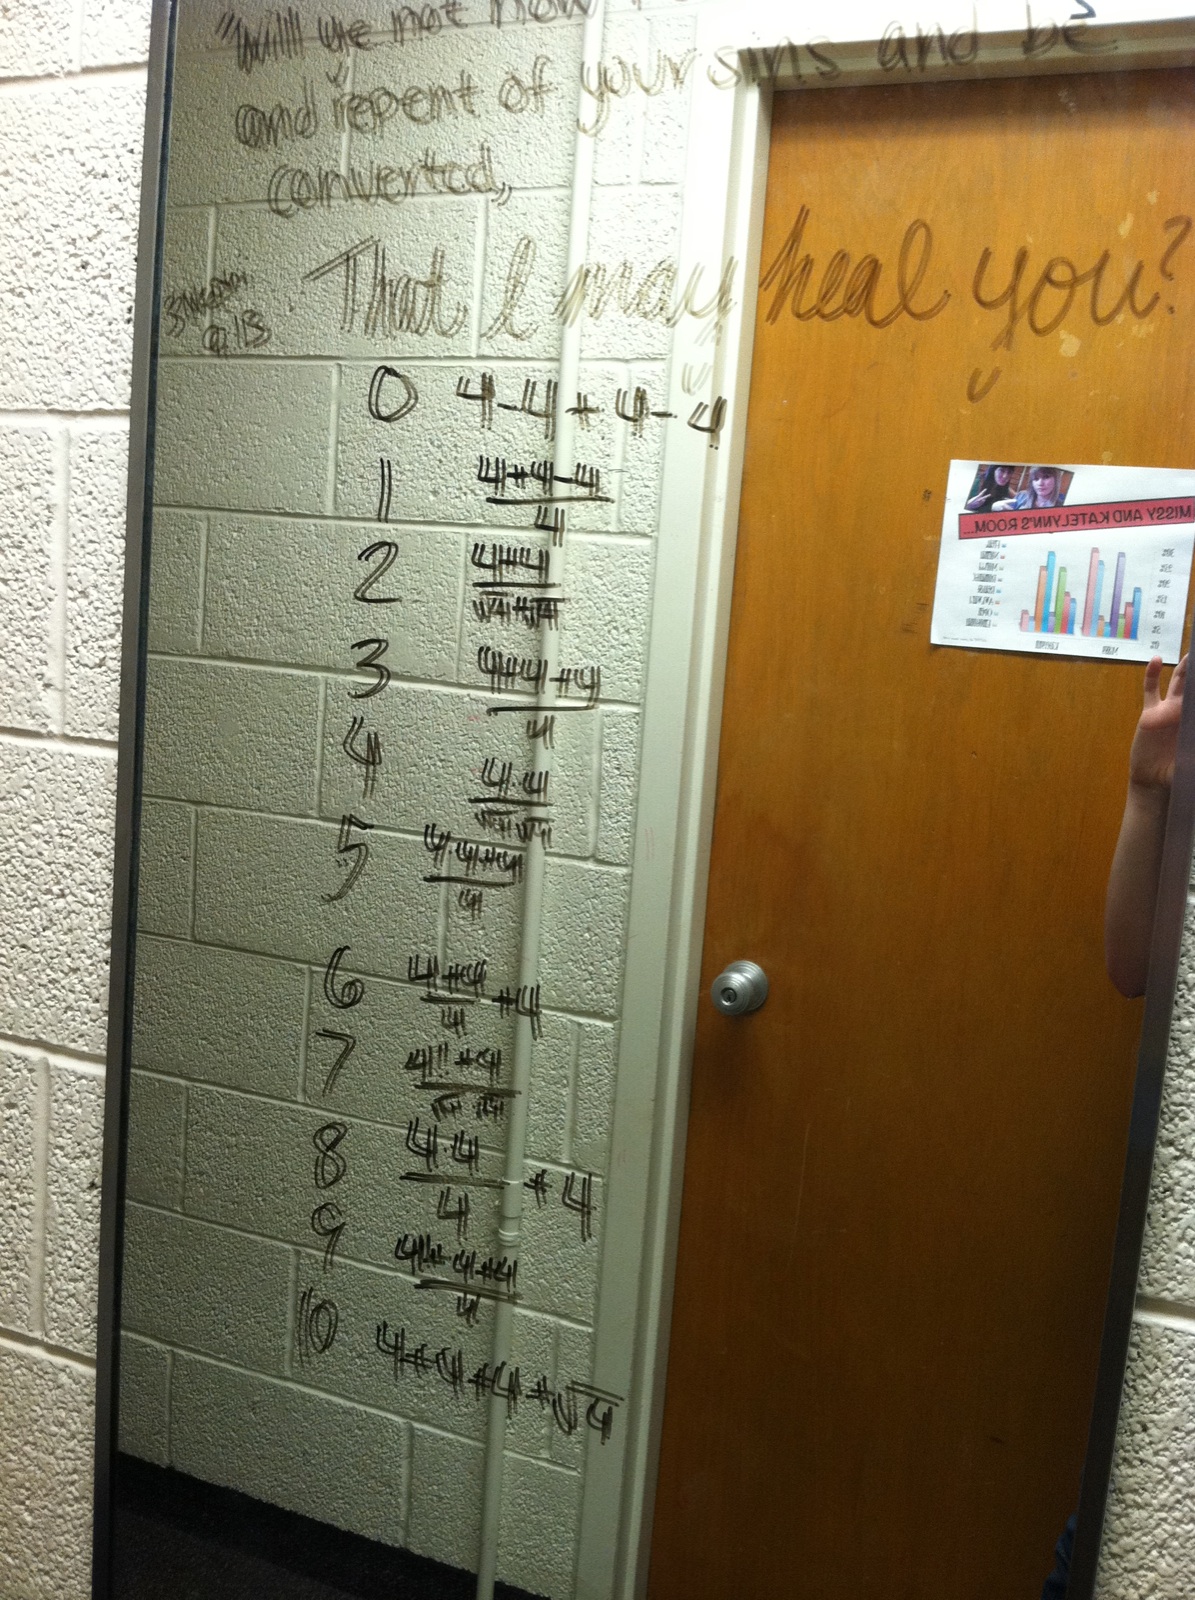 "Will ye not now
and repent of your sins and be
converted,
That I may heal you?
3 Nephi
9:13
0 4-4+4-4
1 4+4-4
4
2 4+4
√4+√4
3 4+4+4
4
4 4·4
√4√4
5 4·4+4
4
6 4+4 +4
4
7 4!!+4
√4 √4
8 4·4 +4
4
9
4
10 4+4+4+√4
MISSY AND KATELYNN'S ROOM...